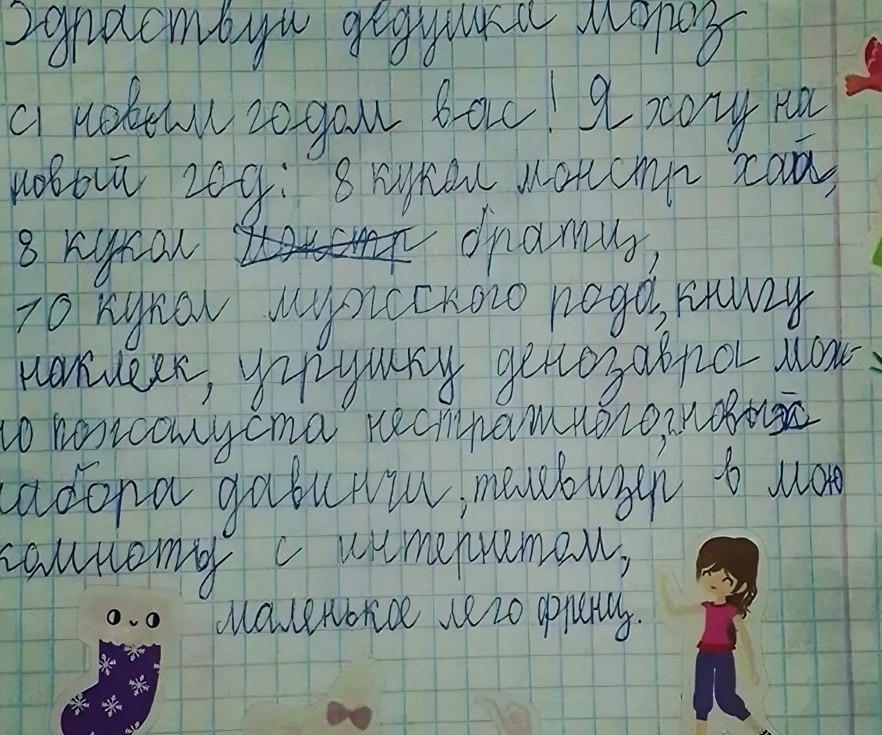 Здраствуй дедушка Мороз
С новым годом вас! Я хочу на
новый год: 8 кукол монстр хай,
8 кукол монстр братц,
10 кукол мужсского рода, книгу
наклеяк, игрушку денозавра мож-
но пожалуста нестрашного, 2 новых
набора давинчи, телевизер в мою
комноту с интернетом,
маленькое лего френц.